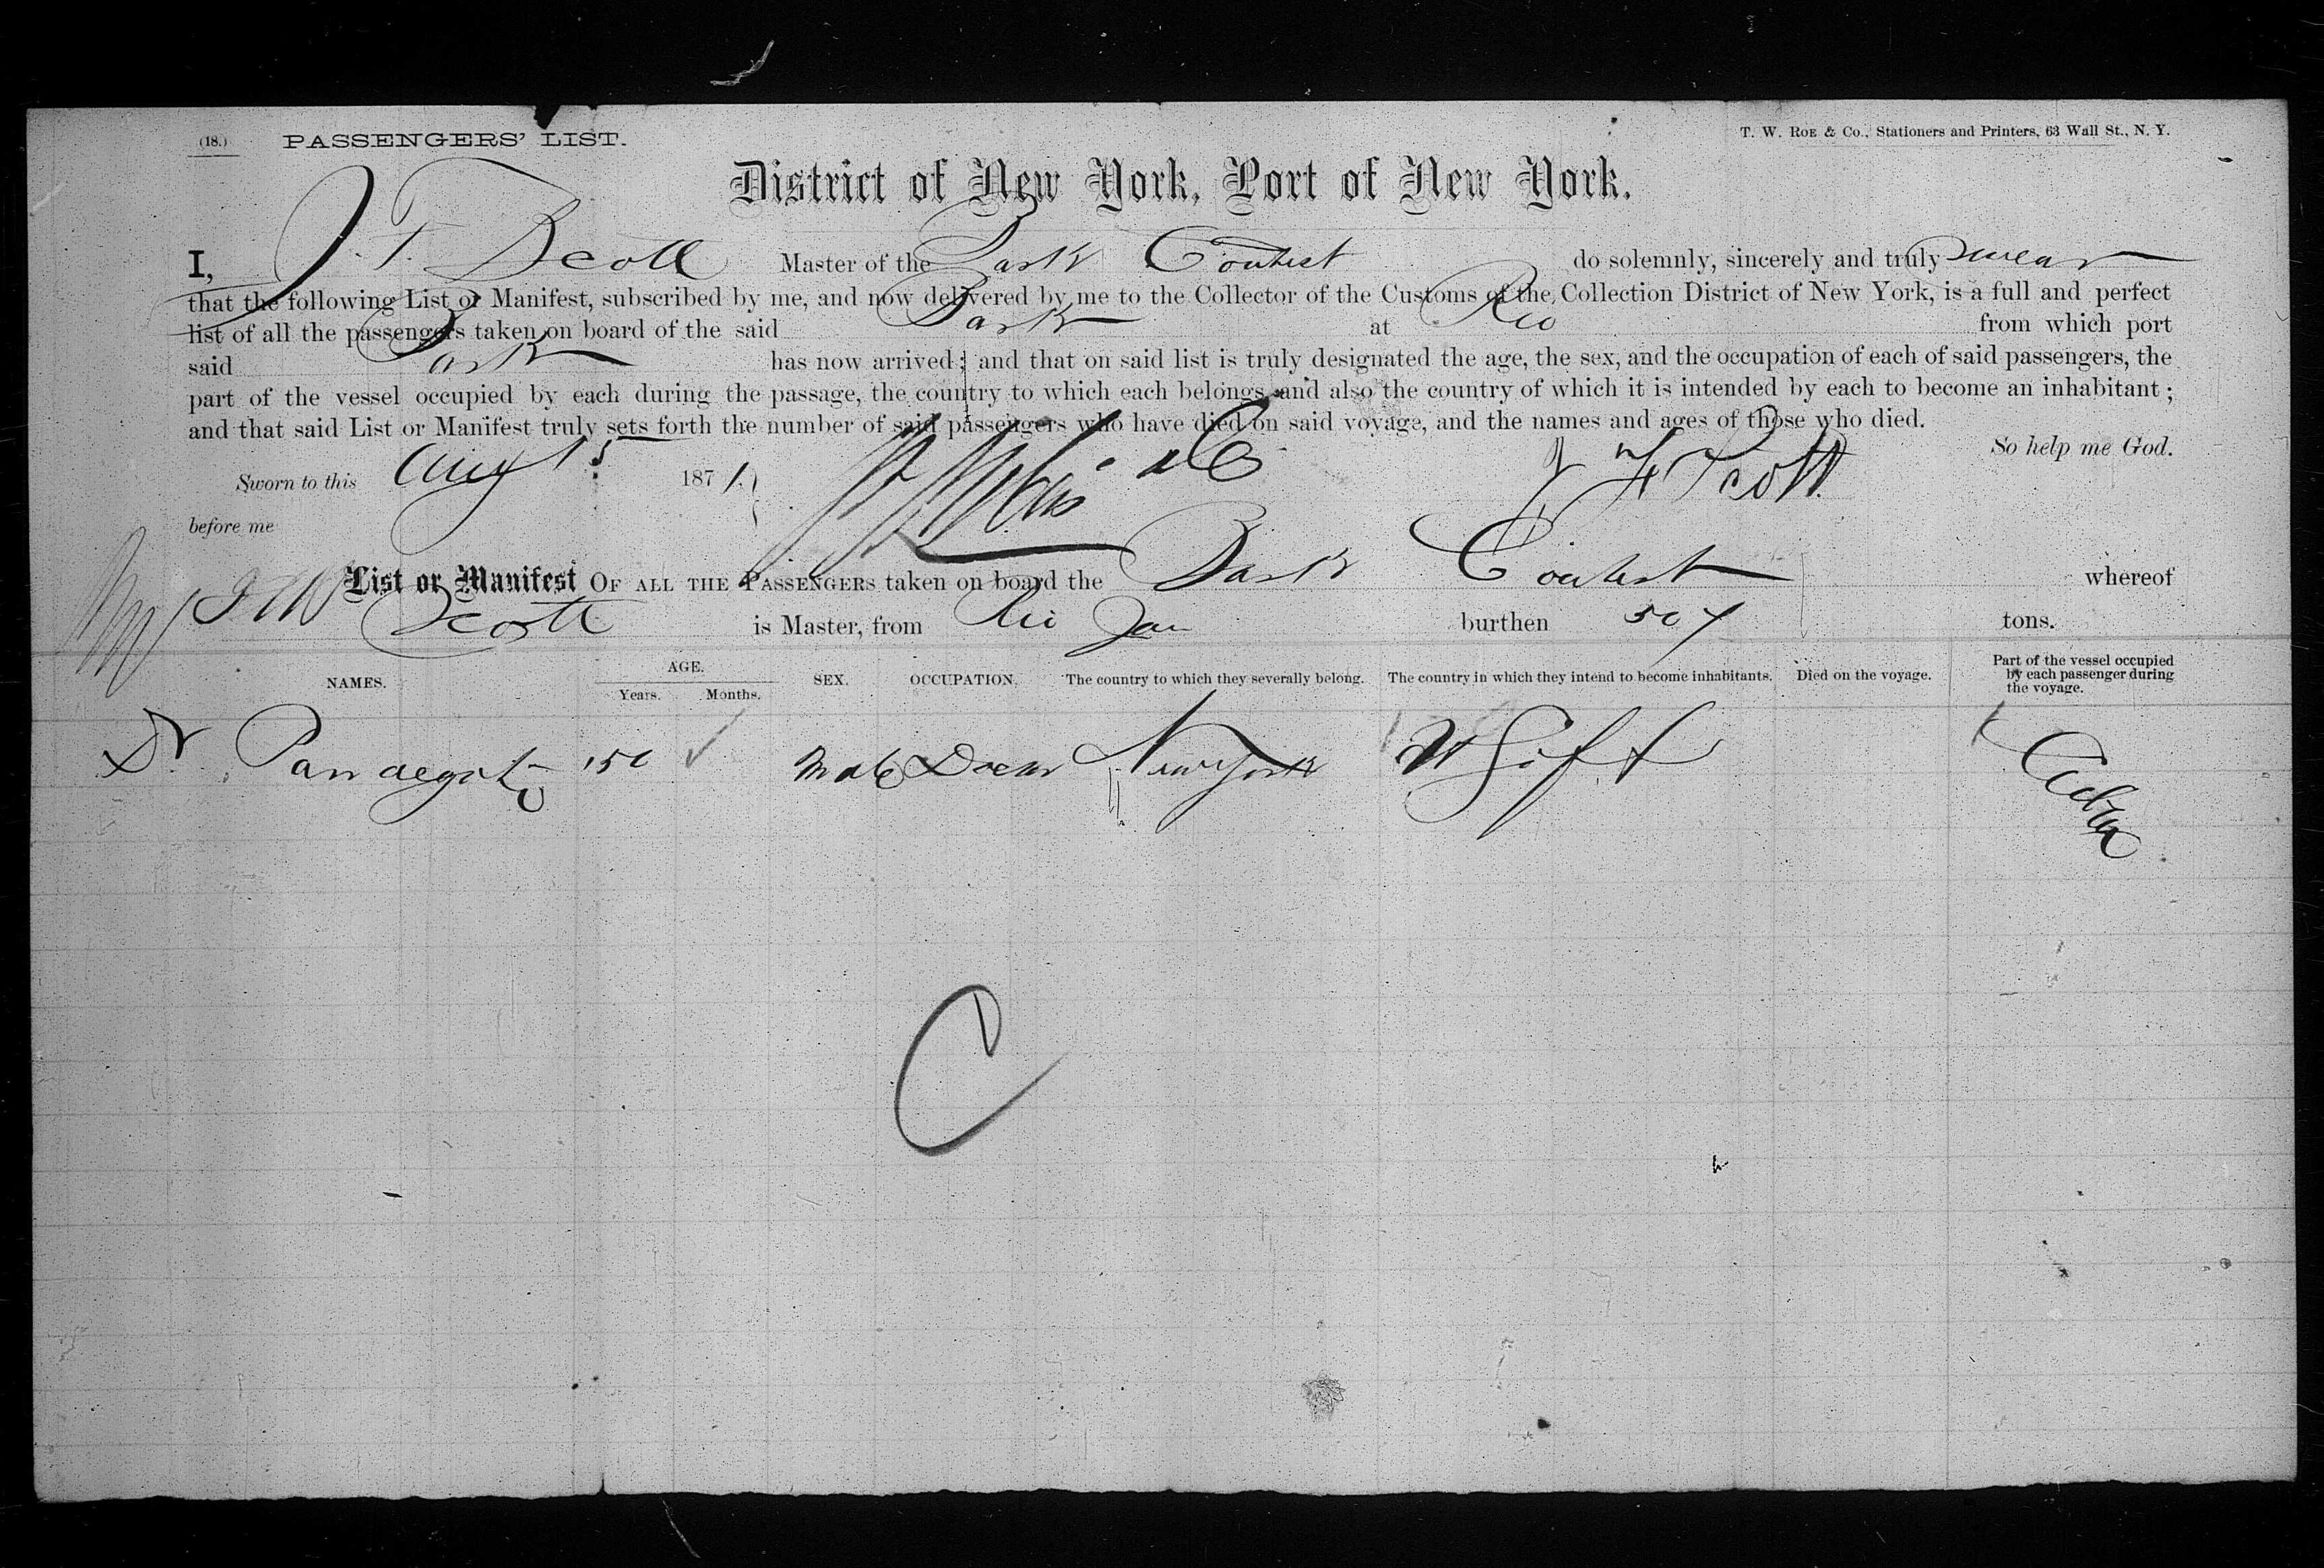 (18.) PASSENGERS' LIST. T. W. ROE & Co., Stationers and Printers, 63 Wall St., N. Y.
District of New York, Port of New York.
I, J. F. Scott Master of the Bark Contest do solemnly, sincerely and truly swear
that the following List or Manifest, subscribed by me, and now delivered by me to the Collector of the Customs of the Collection District of New York, is a full and perfect
list of all the passengers taken on board of the said Bark at Rio from which port
said Bark has now arrived; and that on said list is truly designated the age, the sex, and the occupation of each of said passengers, the
part of the vessel occupied by each during the passage, the country to which each belongs, and also the country of which it is intended by each to become an inhabitant;
and that said List or Manifest truly sets forth the number of said passengers who have died on said voyage, and the names and ages of those who died.
So help me God.
Sworn to this Aug 15 1871. Scott
before me
List or Manifest OF ALL THE PASSENGERS taken on board the Bark Contest whereof
Scott is Master, from Rio Jan burthen 507 tons.
NAMES. AGE. Years. Months. SEX. OCCUPATION. The country to which they severally belong. The country in which they intend to become inhabitants. Died on the voyage. Part of the vessel occupied by each passenger during the voyage.
Dr Male New York Cabin
C